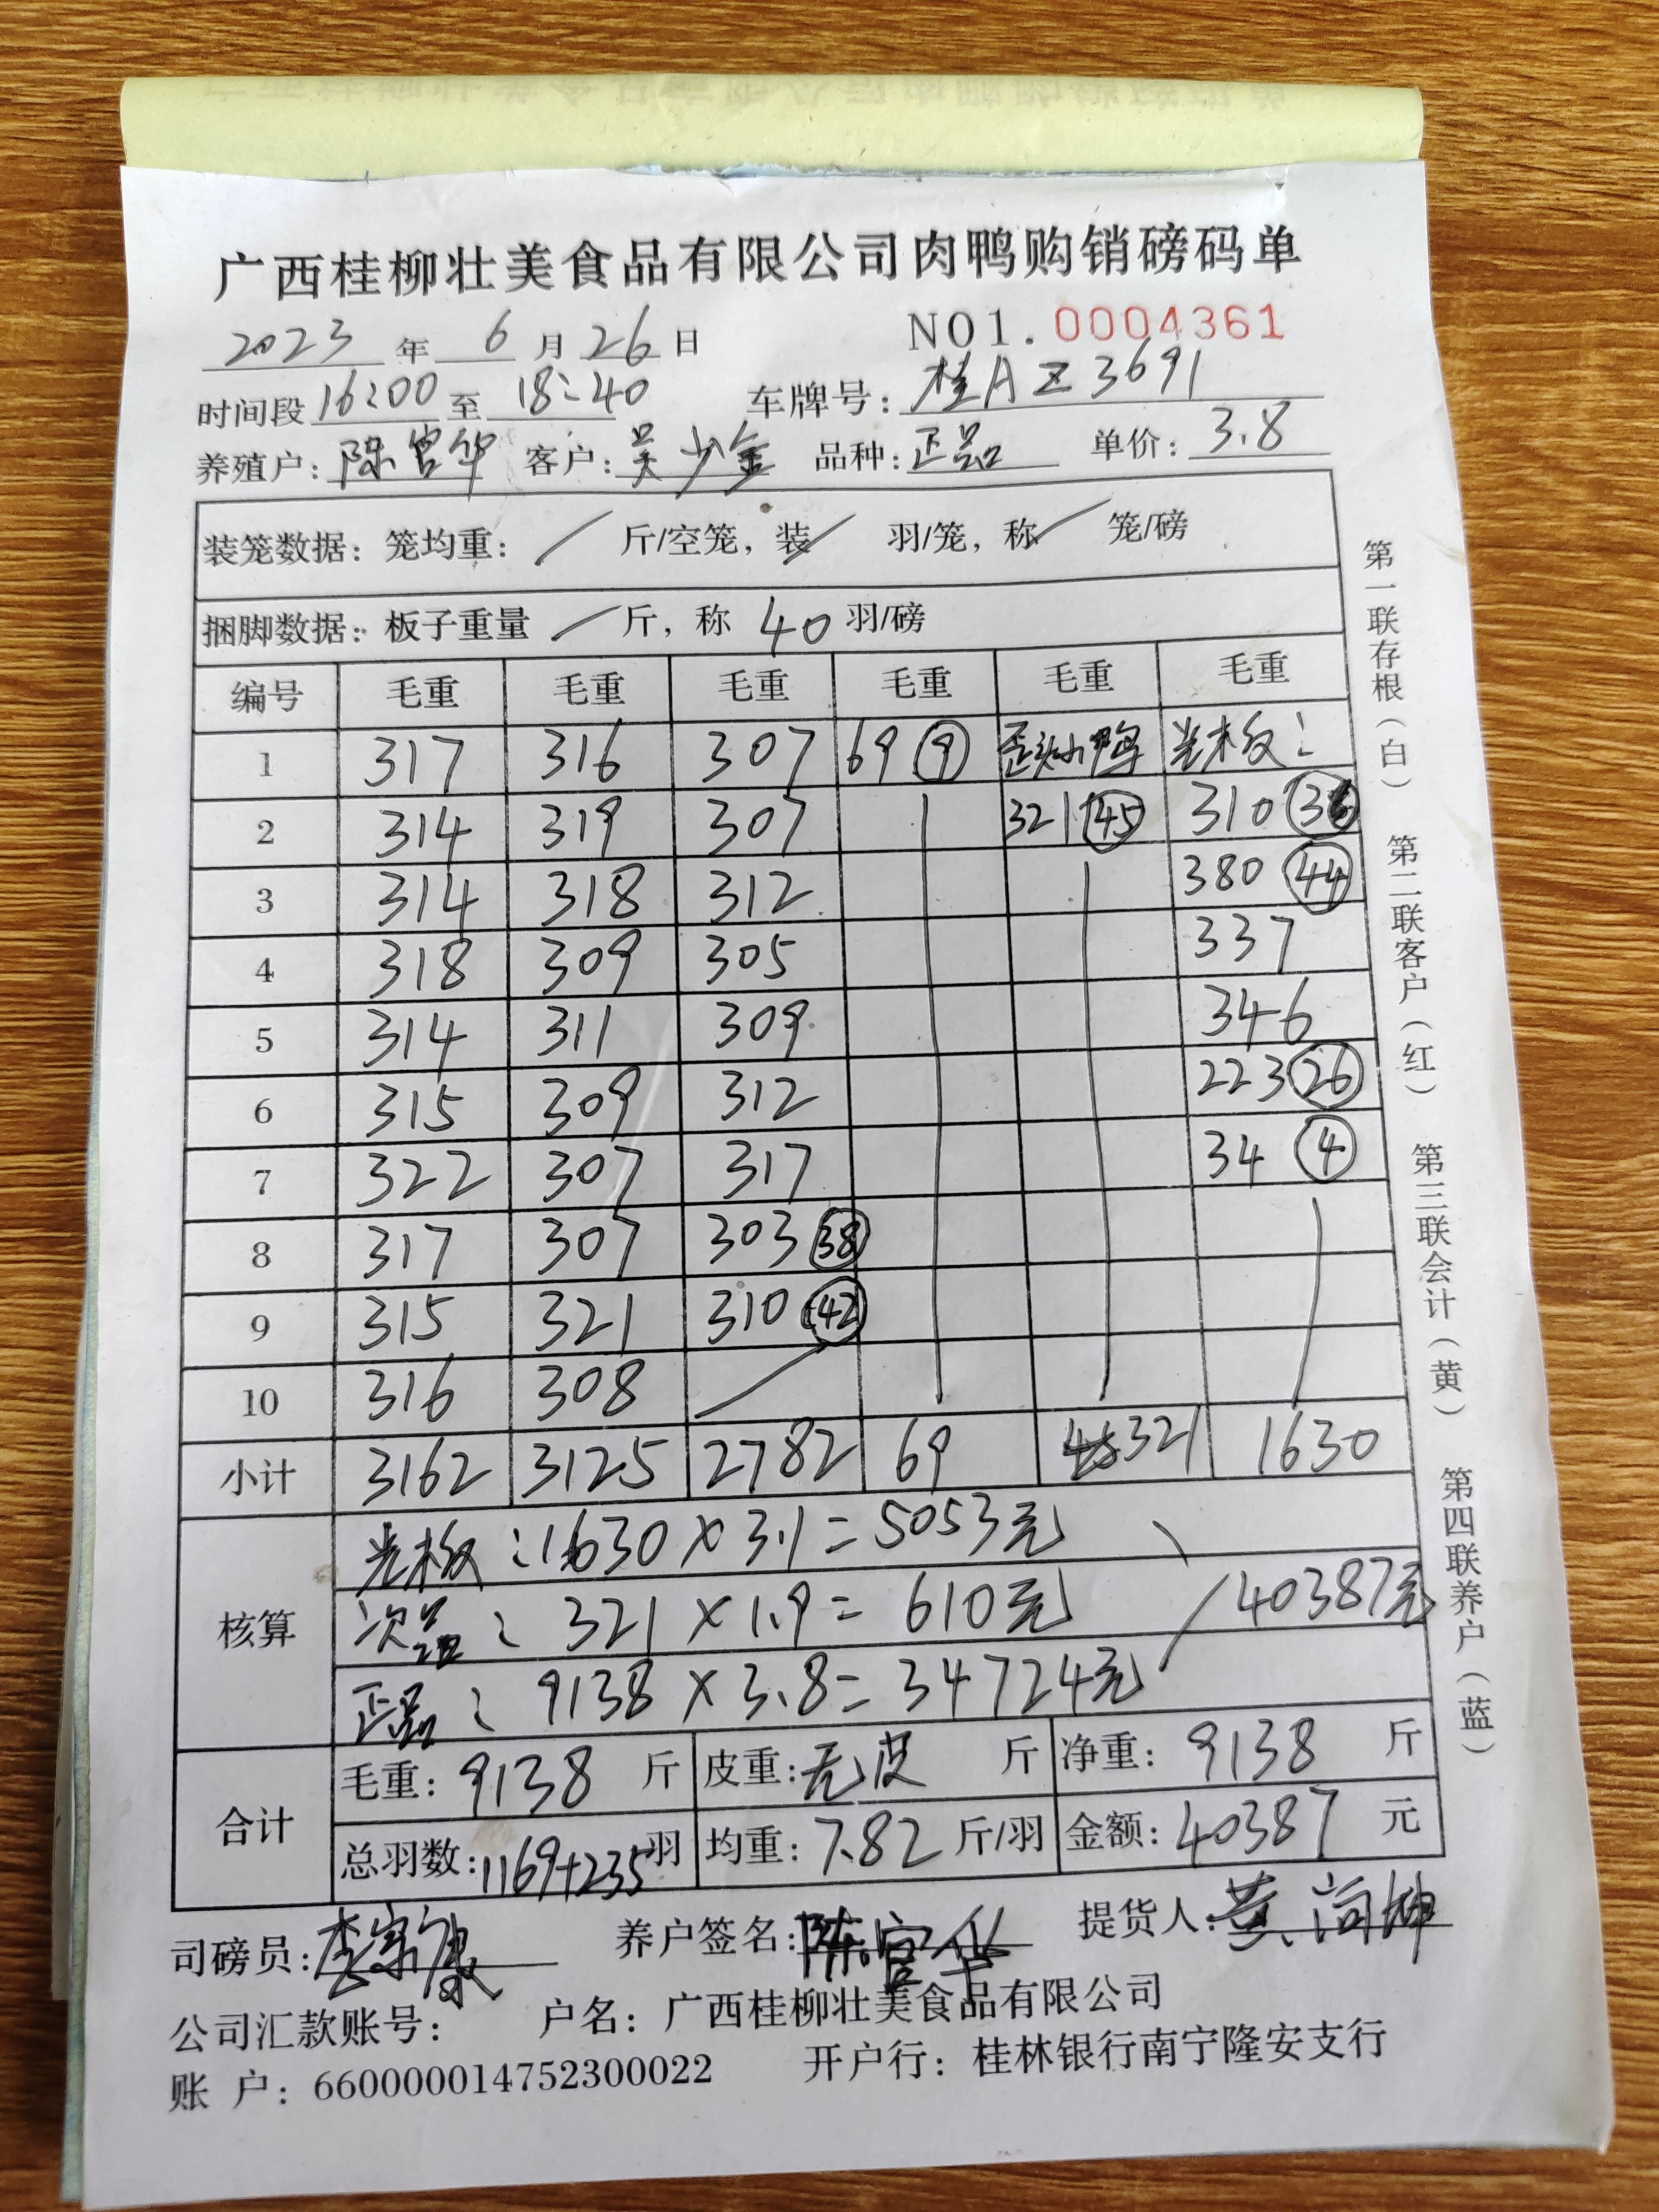 广西桂柳壮美食品有限公司肉鸭购销磅码单
2023 年 6 月 26 日 NO1. 0004361
时间段 16:00 至 18:40 车牌号: 桂AZ3691
养殖户: 陈官华 客户: 吴少金 品种: 正品 单价: 3.8
装笼数据: 笼均重: / 斤/空笼, 装 / 羽/笼, 称 / 笼/磅
捆脚数据: 板子重量 / 斤, 称 40 羽/磅
编号 毛重 毛重 毛重 毛重 毛重 毛重
1 317 316 307 69 9 歪头小鸭 光板:
2 314 319 307 321 45 310
3 314 318 312 380 44
4 318 309 305 337
5 314 311 309 346
6 315 309 312 223 26
7 322 307 317 34 4
8 317 307 303 38
9 315 321 310 42
10 316 308
小计 3162 3125 2782 69 321 1630
核算
光板:1630×3.1=5053元
次品: 321×1.9= 610元
40387元
正品: 9138×3.8=34724元
合计
毛重: 9138 斤 皮重: 无皮 斤 净重: 9138 斤
总羽数: 1169+235 羽 均重: 7.82 斤/羽 金额: 40387 元
司磅员: 李宗康 养户签名: 陈官华 提货人: 黄
公司汇款账号: 户名: 广西桂柳壮美食品有限公司
账 户: 660000014752300022 开户行: 桂林银行南宁隆安支行
第一联存根(白) 第二联客户(红) 第三联会计(黄) 第四联养户(蓝)